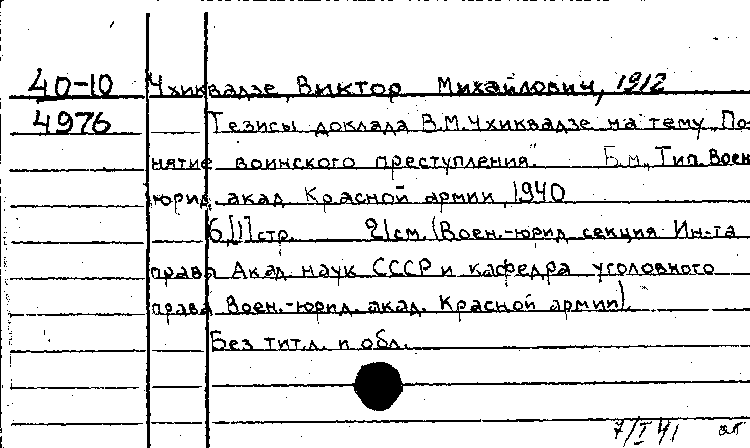 40-10 Чхиквадзе, Виктор Михайлович, 1912
4976 Тезисы доклада В.М. Чхиквадзе на тему „По-
нятие воинского преступления." Б.м., Тип. Воен
юрид. акад Красной армии, 1940
6,[1] стр. 21 см. (Воен.-юрид секция Ин-та
права Акад наук СССР и кафедра уголовного
права Воен.-юрид. акад. Красной армии).
Без тит.л. и обл.
7/I 41